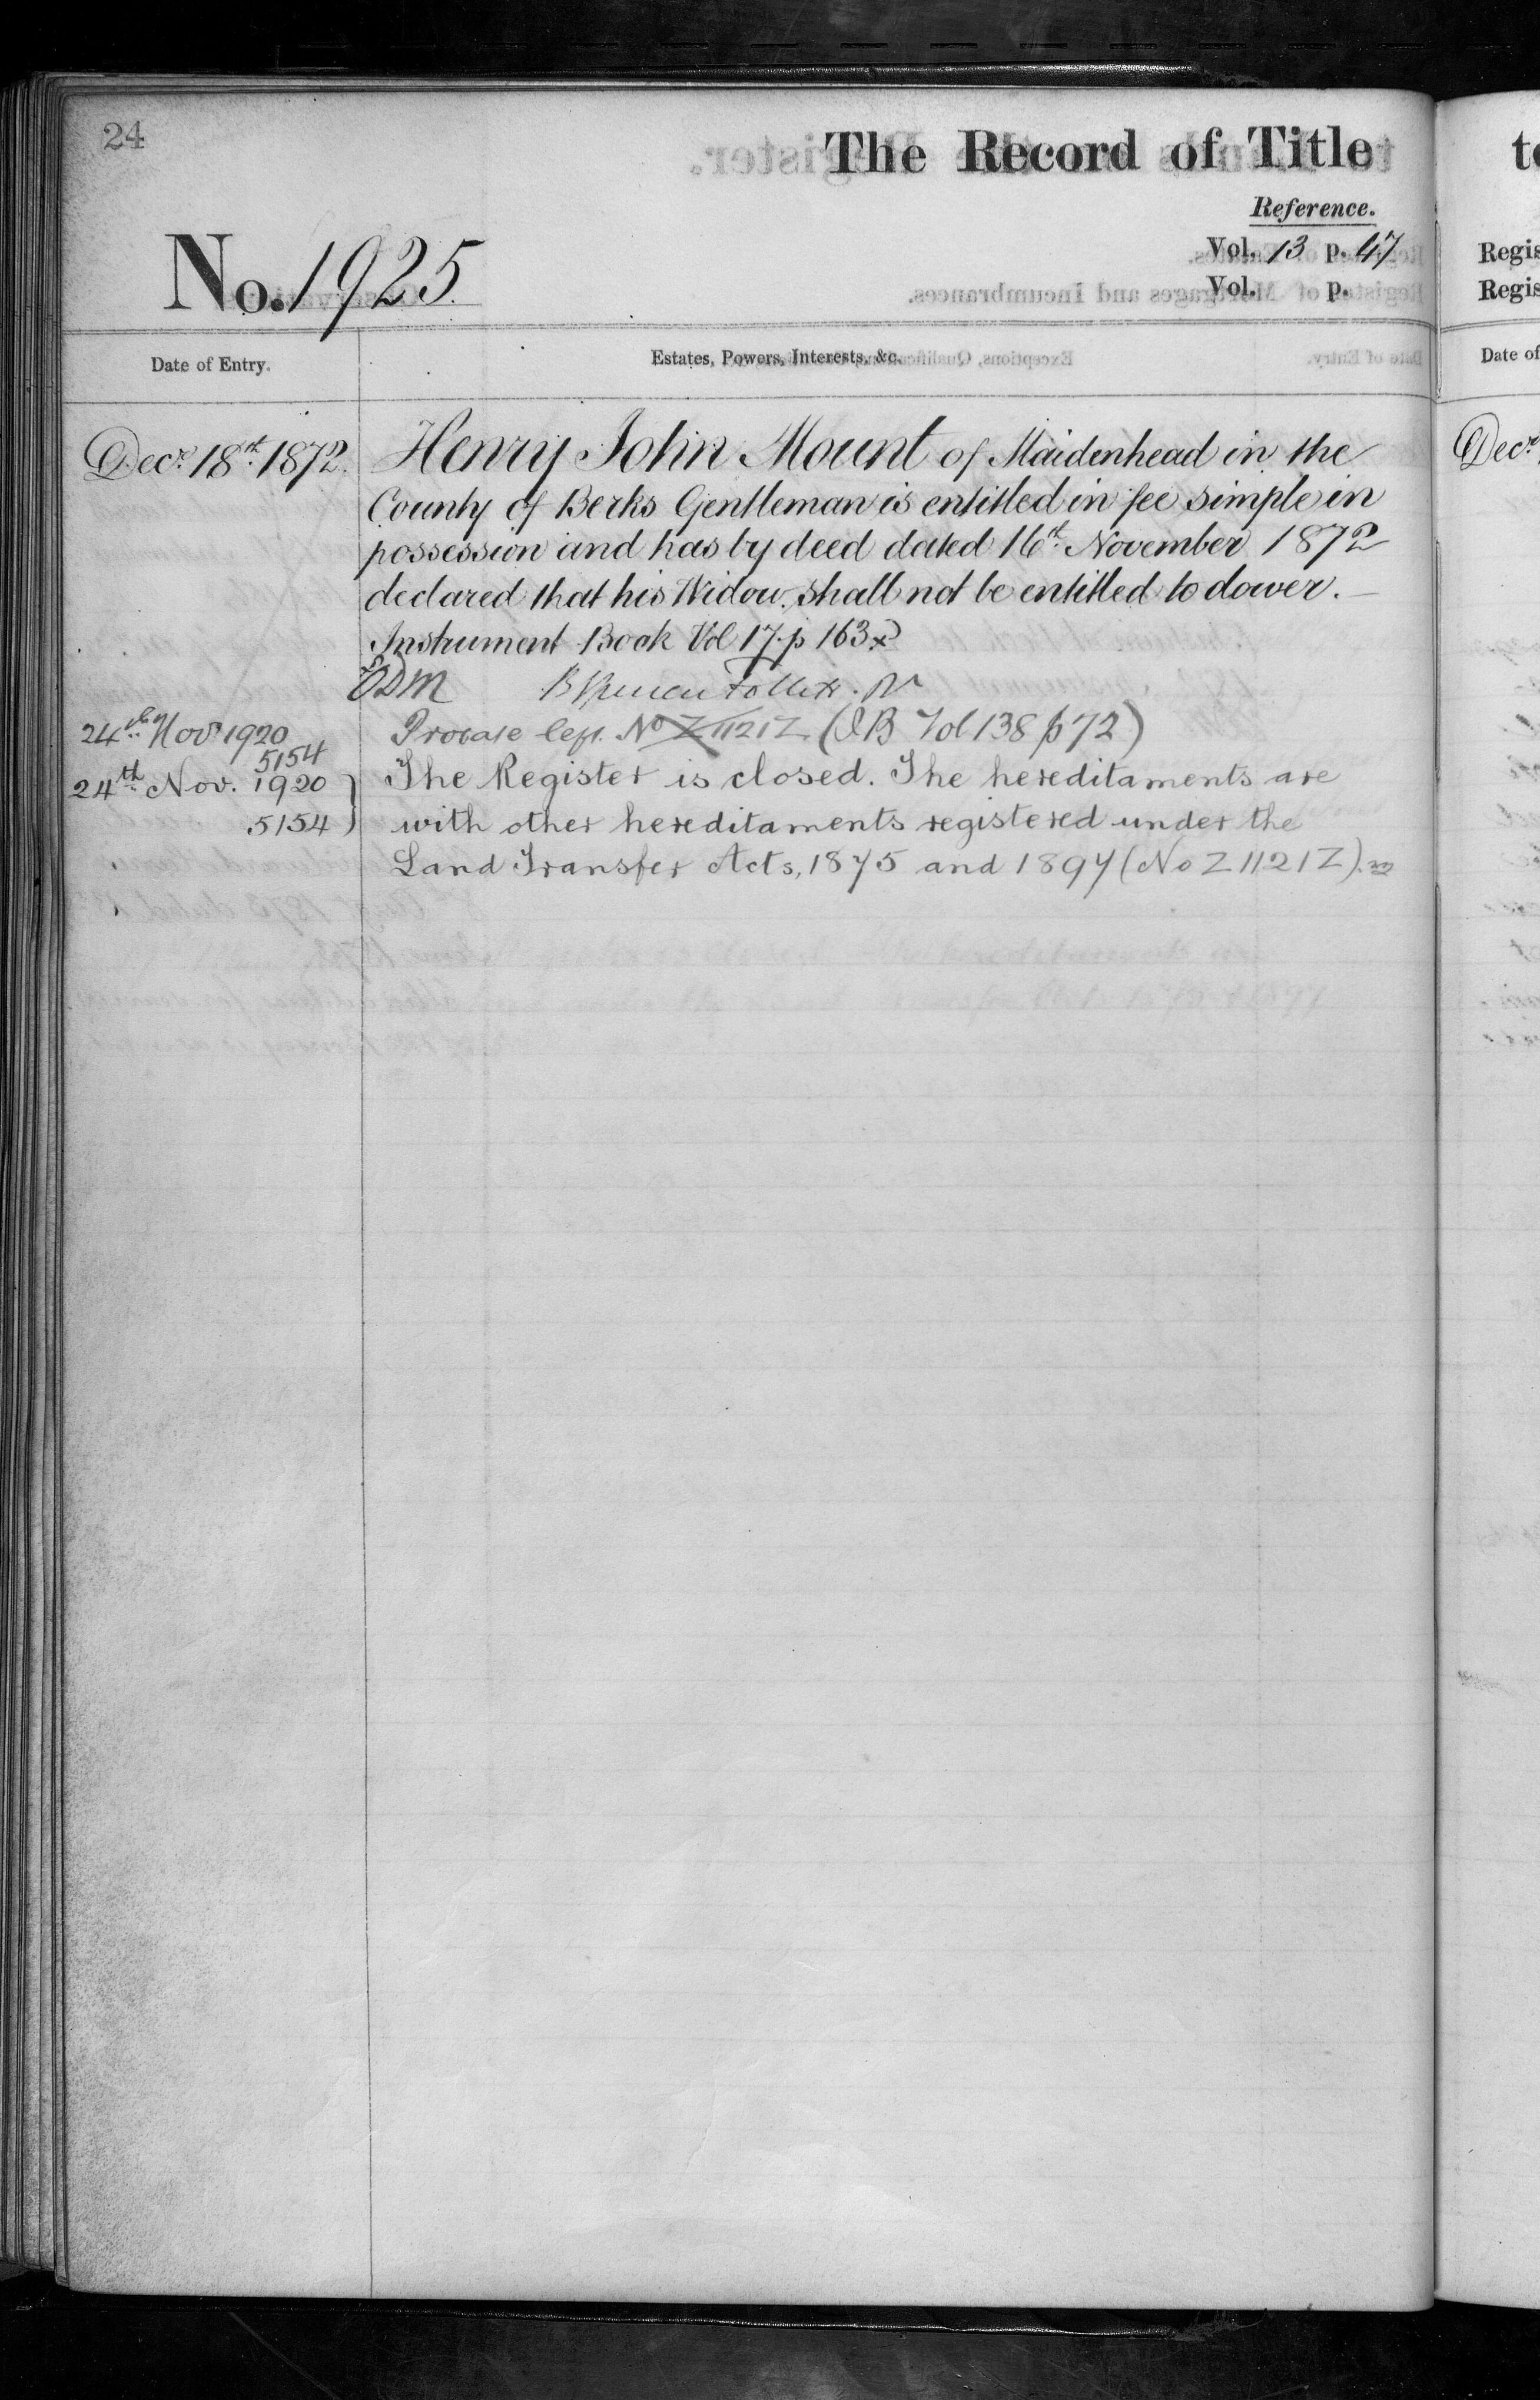 24
The Record of Title
Reference.
No. 1925
Vol. 13 p. 47
Vol. p.
Date of Entry.
Estates, Powers, Interests, &c.
Decr. 18th. 1872.
Henry John Mount of Maidenhead in the
County of Berks Gentleman is entitled in fee simple in
possession and has by deed dated 16th November 1872
declared that his Widow shall not be entitled to dower.
Instrument Book Vol 17. p 163
Spencer Follett. R
24th Novr 1920
5154
No Z 1121Z (IB Vol 138 p 72)
24th Nov. 1920
5154
The Register is closed. The hereditaments are
with other hereditaments registered under the
Land Transfer Acts, 1875 and 1897 (No Z 1121Z).
to
Regis
Regis
Date of
Decr